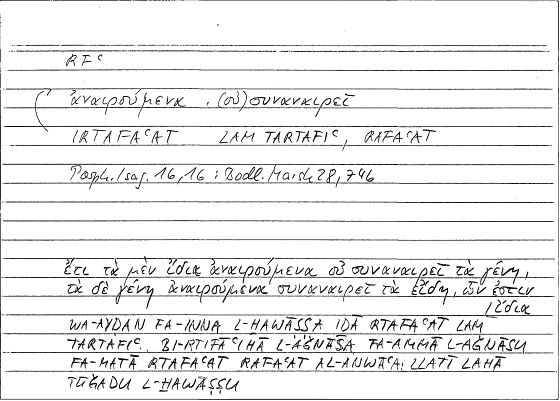 RFᶜ
ἀναιρούμενα , (οὐ) συναναιρεῖ
IRTAFAᶜAT LAM TARTAFIᶜ, RAFAᶜAT
Porph. Isag. 16,16 : Bodl. Marsh 28, 746
ἔτι τὰ μὲν ἴδια ἀναιρούμενα οὐ συναναιρεῖ τὰ γένη,
τὰ δὲ γένη ἀναιρούμενα συναναιρεῖ τὰ εἴδη, ὧν ἐστιν
ἴδια
WA-AYḌAN FA-INNA L-ḪAWĀṢṢA IḎĀ RTAFAᶜAT LAM
TARTAFIᶜ BI-RTIFĀᶜIHĀ L-AǦNĀSA FA-AMMĀ L-AǦNĀSU
FA-MATĀ RTAFAᶜAT RAFAᶜAT AL-ANWĀᶜA LLATĪ LAHĀ
TŪǦADU L-ḪAWĀṢṢU